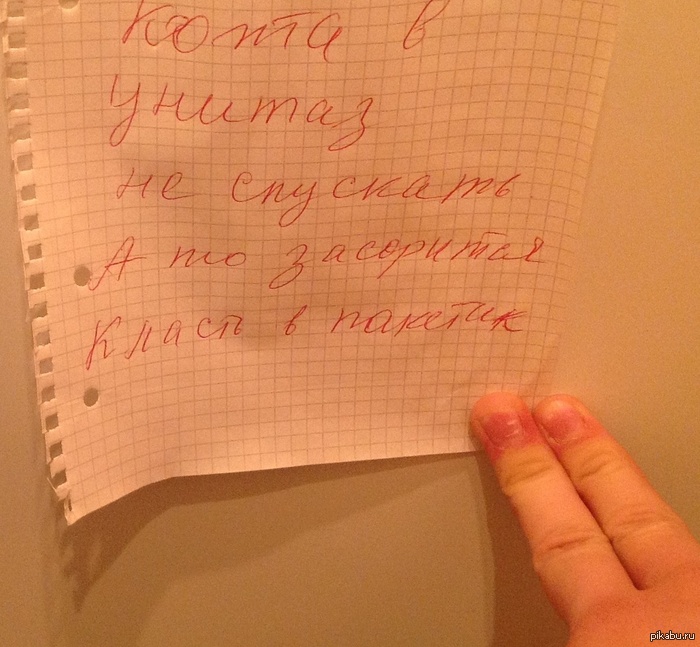 кота в
унитаз
не спускать
А то засорится
Класть в пакетик
pikabu.ru